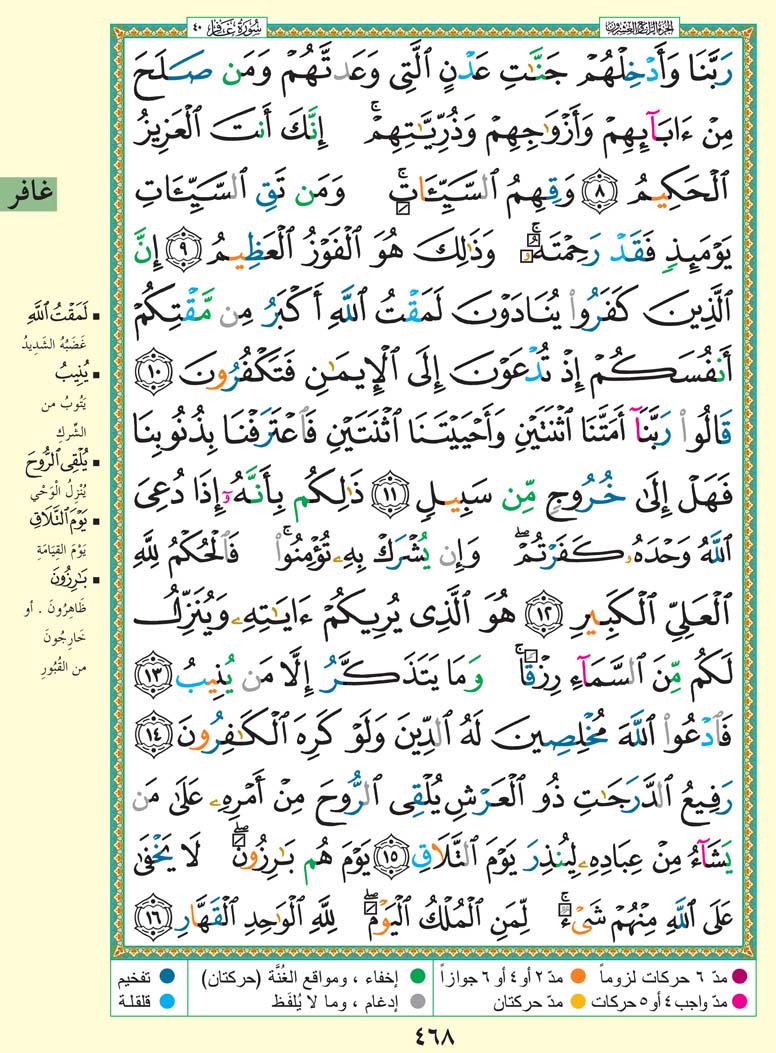 سُورَةُ غَافِرٍ ٤٠
الجُزْءُ الرَّابِعُ وَالعِشْرُونَ
رَبَّنَا وَأَدْخِلْهُمْ جَنَّٰتِ عَدْنٍ ٱلَّتِى وَعَدتَّهُمْ وَمَن صَلَحَ
مِنْ ءَابَآئِهِمْ وَأَزْوَٰجِهِمْ وَذُرِّيَّٰتِهِمْ ۚ إِنَّكَ أَنتَ ٱلْعَزِيزُ
ٱلْحَكِيمُ ٨ وَقِهِمُ ٱلسَّيِّـَٔاتِ ۚ وَمَن تَقِ ٱلسَّيِّـَٔاتِ
يَوْمَئِذٍ فَقَدْ رَحِمْتَهُۥ ۚ وَذَٰلِكَ هُوَ ٱلْفَوْزُ ٱلْعَظِيمُ ٩ إِنَّ
ٱلَّذِينَ كَفَرُوا۟ يُنَادَوْنَ لَمَقْتُ ٱللَّهِ أَكْبَرُ مِن مَّقْتِكُمْ
أَنفُسَكُمْ إِذْ تُدْعَوْنَ إِلَى ٱلْإِيمَٰنِ فَتَكْفُرُونَ ١٠
قَالُوا۟ رَبَّنَآ أَمَتَّنَا ٱثْنَتَيْنِ وَأَحْيَيْتَنَا ٱثْنَتَيْنِ فَٱعْتَرَفْنَا بِذُنُوبِنَا
فَهَلْ إِلَىٰ خُرُوجٍ مِّن سَبِيلٍ ١١ ذَٰلِكُم بِأَنَّهُۥٓ إِذَا دُعِىَ
ٱللَّهُ وَحْدَهُۥ كَفَرْتُمْ ۖ وَإِن يُشْرَكْ بِهِۦ تُؤْمِنُوا۟ ۚ فَٱلْحُكْمُ لِلَّهِ
ٱلْعَلِىِّ ٱلْكَبِيرِ ١٢ هُوَ ٱلَّذِى يُرِيكُمْ ءَايَٰتِهِۦ وَيُنَزِّلُ
لَكُم مِّنَ ٱلسَّمَآءِ رِزْقًا ۚ وَمَا يَتَذَكَّرُ إِلَّا مَن يُنِيبُ ١٣
فَٱدْعُوا۟ ٱللَّهَ مُخْلِصِينَ لَهُ ٱلدِّينَ وَلَوْ كَرِهَ ٱلْكَٰفِرُونَ ١٤
رَفِيعُ ٱلدَّرَجَٰتِ ذُو ٱلْعَرْشِ يُلْقِى ٱلرُّوحَ مِنْ أَمْرِهِۦ عَلَىٰ مَن
يَشَآءُ مِنْ عِبَادِهِۦ لِيُنذِرَ يَوْمَ ٱلتَّلَاقِ ١٥ يَوْمَ هُم بَٰرِزُونَ ۖ لَا يَخْفَىٰ
عَلَى ٱللَّهِ مِنْهُمْ شَىْءٌ ۚ لِّمَنِ ٱلْمُلْكُ ٱلْيَوْمَ ۖ لِلَّهِ ٱلْوَٰحِدِ ٱلْقَهَّارِ ١٦
غافر
لَمَقْتُ ٱللَّهِ
غَضَبُهُ الشَّدِيدُ
يُنِيبُ
يَتُوبُ من
الشِّركِ
يُلْقِى ٱلرُّوحَ
يُنْزِلُ الْوَحْي
يَوْمَ ٱلتَّلَاقِ
يَوْمَ القِيَامَةِ
بَٰرِزُونَ
ظَاهِرُونَ . أو
خَارِجُونَ
من القُبُورِ
مدّ ٦ حركات لزوماً
مدّ ٢ أو ٤ أو ٦ جوازاً
إخفاء ، ومواقع الغُنَّة (حركتان)
تفخيم
مدّ واجب ٤ أو ٥ حركات
مدّ حركتان
إدغام ، وما لا يُلفَظ
قلقلة
٤٦٨